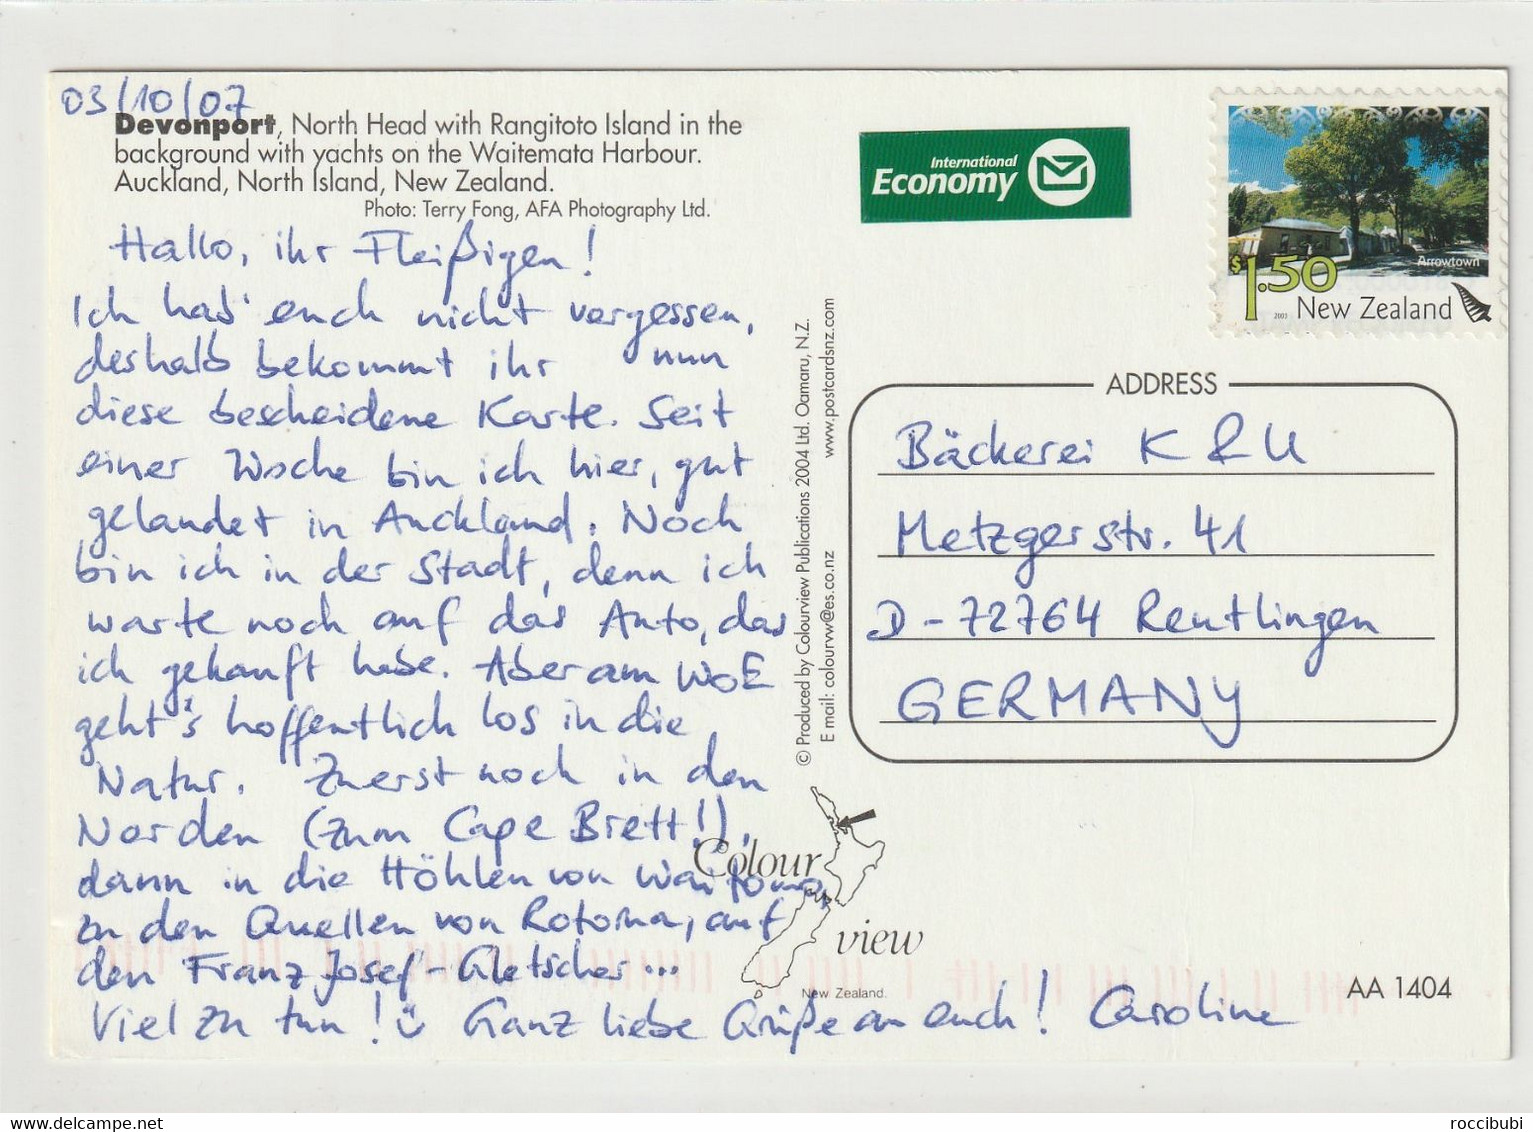 03/10/07
Devonport, North Head with Rangitoto Island in the
background with yachts on the Waitemata Harbour.
Auckland, North Island, New Zealand.
Photo: Terry Fong, AFA Photography Ltd.
Hallo, ihr Fleißigen!
Ich hab' euch nicht vergessen,
deshalb bekommt ihr nun
diese bescheidene Karte. Seit
einer Woche bin ich hier, gut
gelandet in Auckland. Noch
bin ich in der Stadt, denn ich
warte noch auf das Auto, das
ich gekauft habe. Aber am WoE
geht's hoffentlich los in die
Natur. Zuerst noch in den
Norden (zum Cape Brett!),
dann in die Höhlen von Waitomo,
zu den Quellen von Rotorua, auf
den Franz Josef-Gletscher...
Viel zu tun! Ganz liebe Grüße an euch! Caroline
© Produced by Colourview Publications 2004 Ltd. Oamaru, N.Z.
E mail: colourvw@es.co.nz www.postcardsnz.com
Colour
view
New Zealand.
International
Economy
Arrowtown
$1.50
2003
New Zealand
ADDRESS
Bäckerei K & U
Metzgerstr. 41
D-72764 Reutlingen
GERMANY
AA 1404
roccibubi